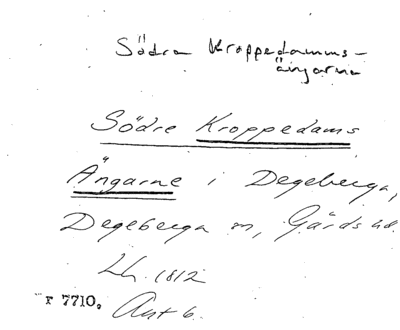 Södra Kroppedamms-
ängarna
Södre Kroppedams
Ängarne i Degeberga,
Degeberga sn, Gärds hd.
Lh. 1812
r 7710.
Akt 6.